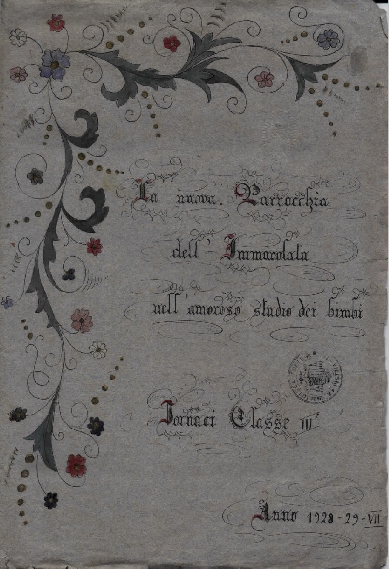 La nuova Parrocchia
dell' Immacolata
nell' amoroso studio dei bimbi
Fornaci Classe III
Anno 1928-29-VII